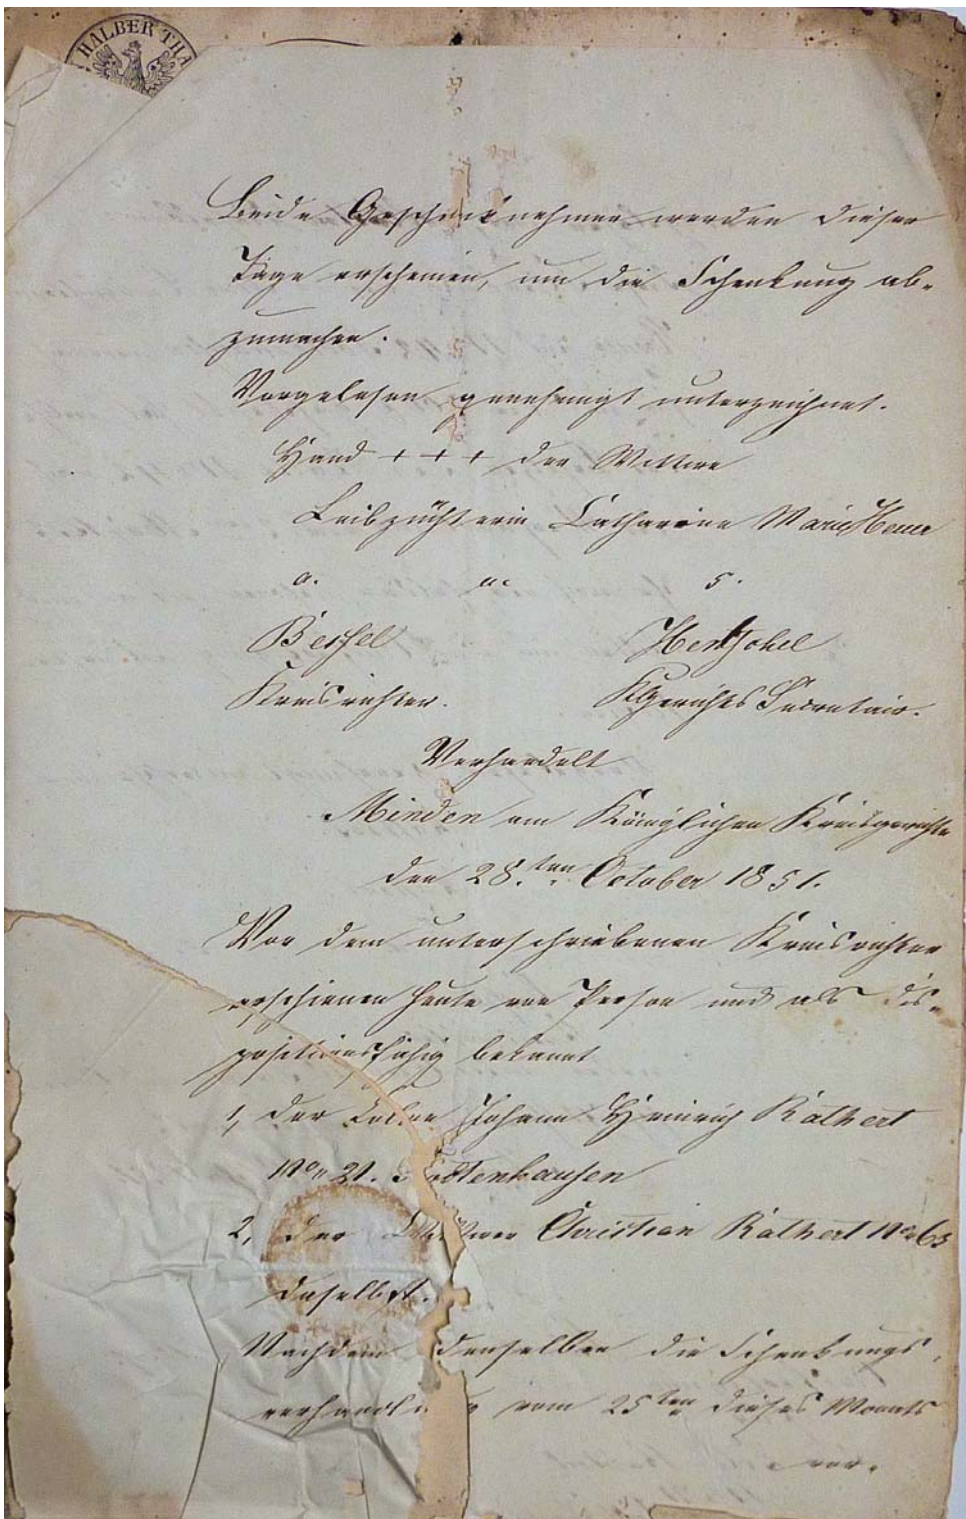 HALBER THA
Beide Geschenknehmer werden dieser
Tage erscheinen, um die Schenkung ab-
zumachen.
Vorgelesen genehmigt unterzeichnet.
Hand + + + der Wittwe
Leibzüchterin Catharine Marie
a. u. s.
Bessel
Kreisrichter. KGerichts Secretair.
Verhandelt
Minden am Königlichen Kreisgerichte
den 28.ten October 1851.
Vor dem unterschriebenen Kreisrichter
erschienen heute von Person und als dis-
positionsfähig bekannt
1, der Colon Johann Heinrich Rathert
No 21. Todtenhausen
2, der Christian Rathert No 63
daselbst.
Nachdem denselben die Schenkungs-
verhandlung vom 25ten dieses Monats
vor-